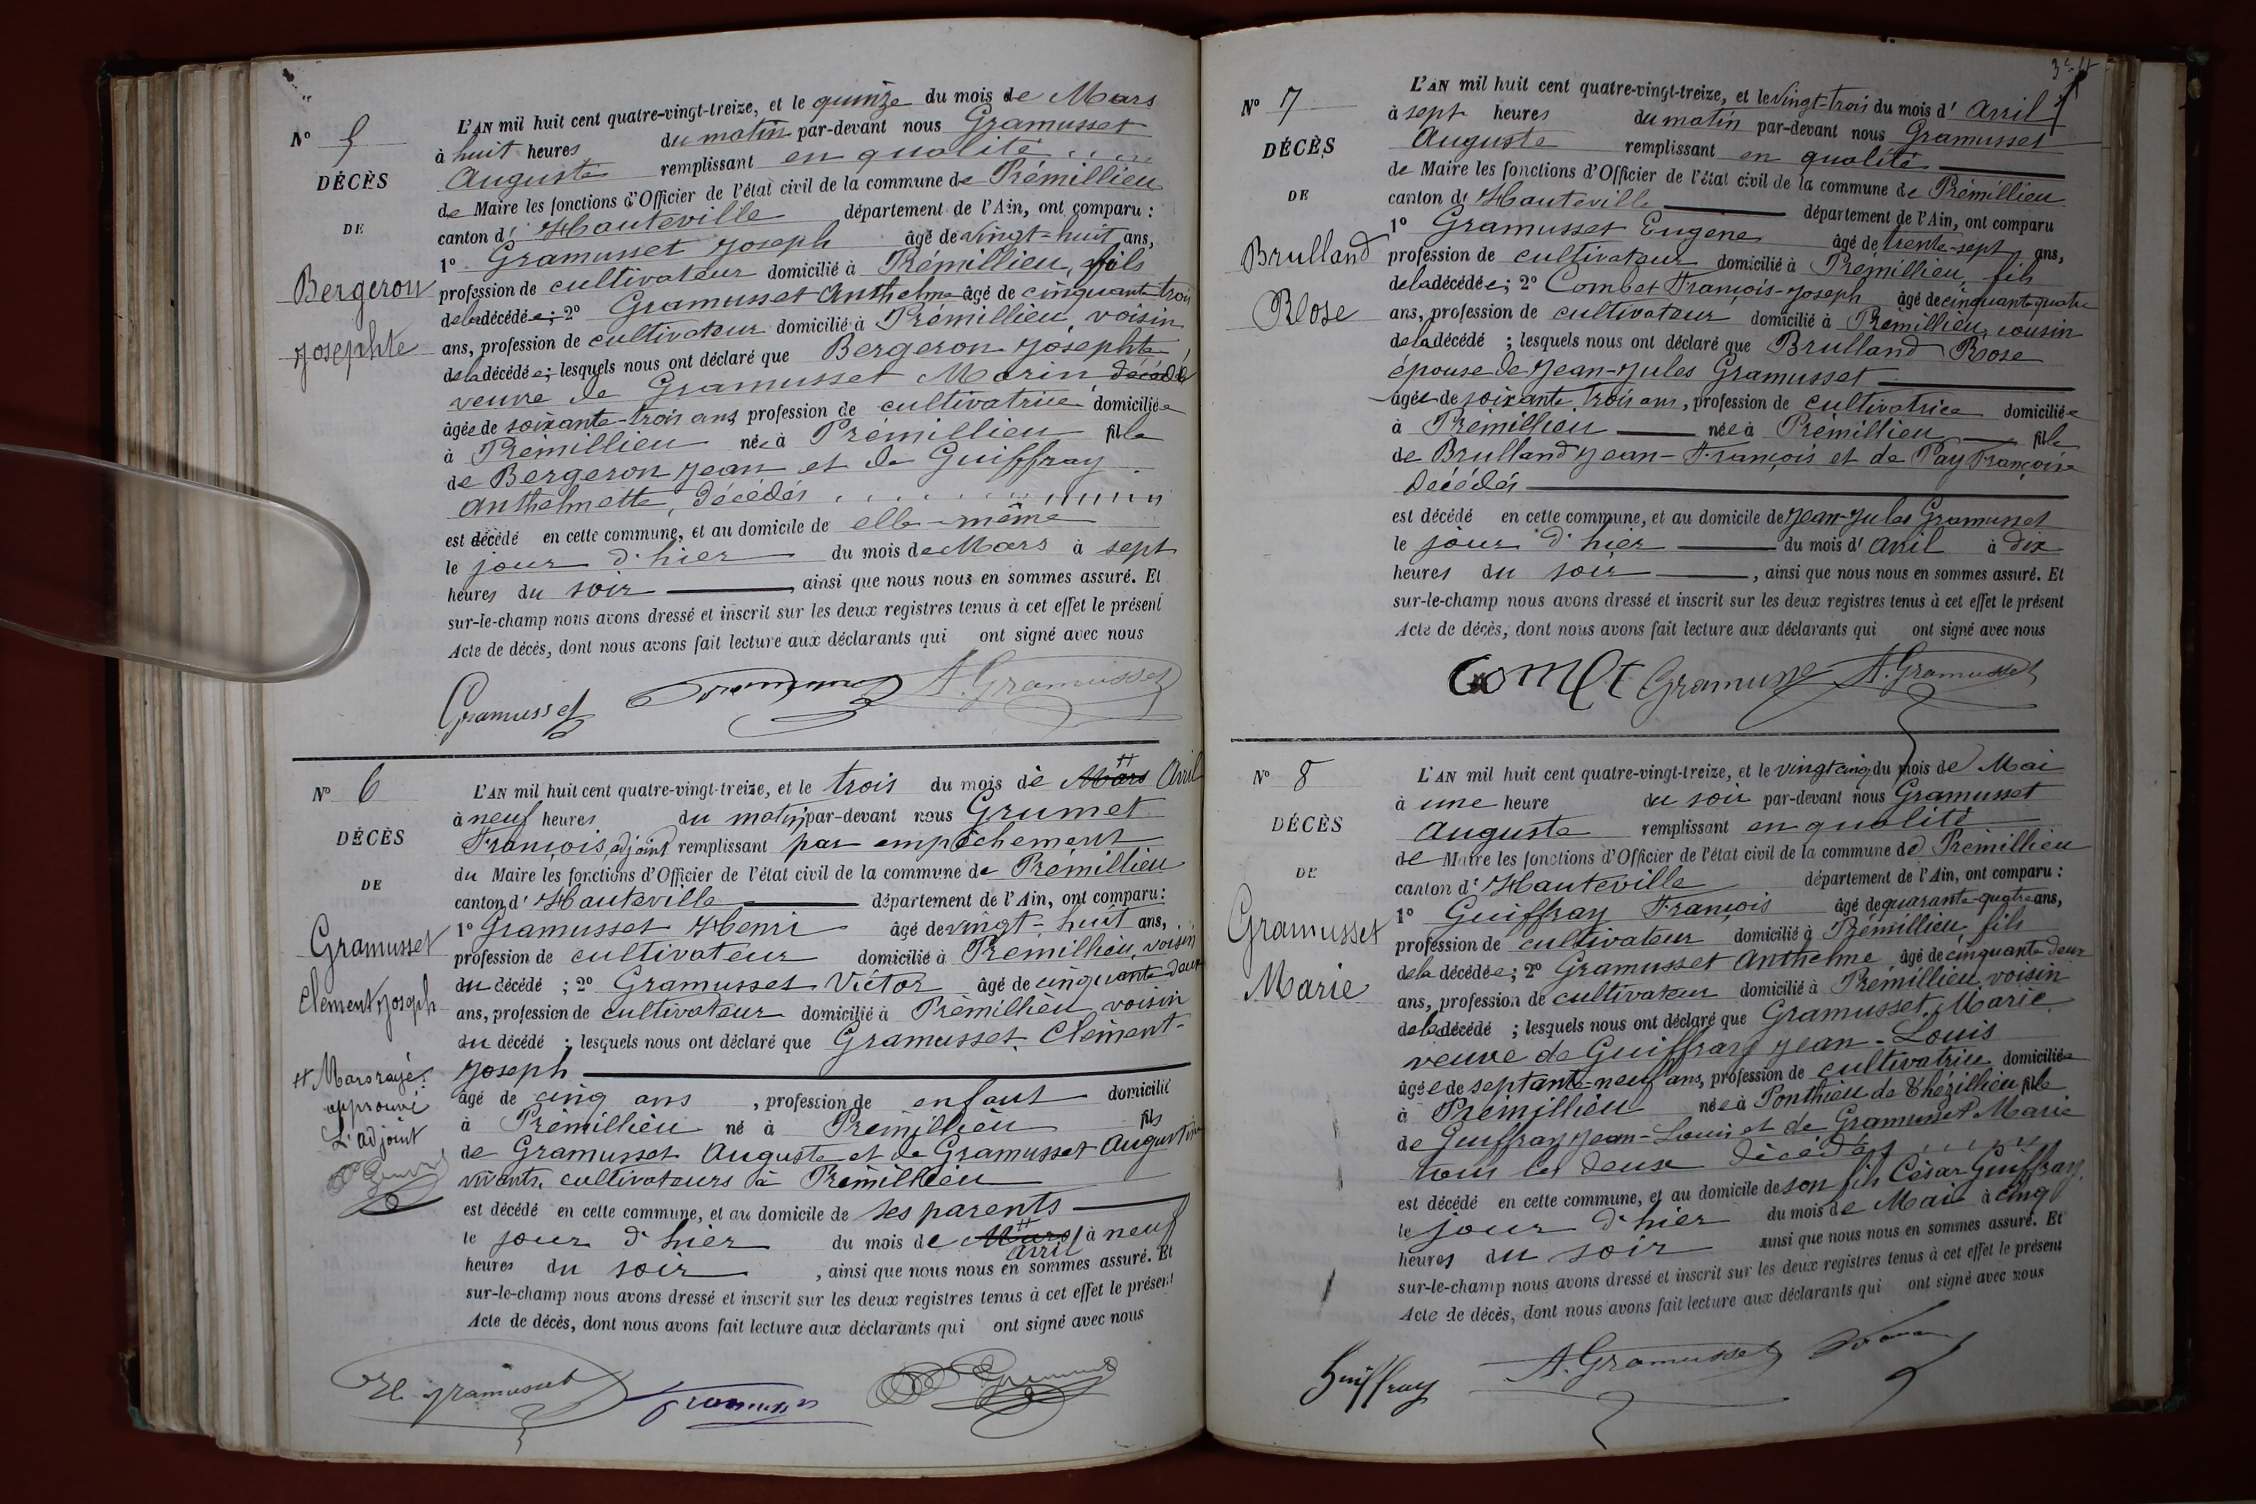 N° 5
DÉCÈS
DE
Bergeron
Josephte
L'AN mil huit cent quatre-vingt-treize, et le quinze du mois de Mars
à huit heures du matin par-devant nous Gramusset
Auguste remplissant en qualité
de Maire les fonctions d'Officier de l'état civil de la commune de Prémillieu
canton d' Hauteville département de l'Ain, ont comparu :
1° Gramusset Joseph âgé de vingt-huit ans,
profession de cultivateur domicilié à Prémillieu, fils
de la décédée ; 2° Gramusset Anthelme âgé de cinquante trois
ans, profession de cultivateur domicilié à Prémillieu, voisin
de la décédée ; lesquels nous ont déclaré que Bergeron Josephte
veuve de Gramusset Marin décédé
âgée de soixante-trois ans profession de cultivatrice domiciliée
à Prémillieu née à Prémillieu fille
de Bergeron Jean et de Guiffray
Anthelmette, décédés
est décédé en cette commune, et au domicile de elle-même
le jour d'hier du mois de Mars à sept
heures du soir , ainsi que nous nous en sommes assuré. Et
sur-le-champ nous avons dressé et inscrit sur les deux registres tenus à cet effet le présent
Acte de décès, dont nous avons fait lecture aux déclarants qui ont signé avec nous
Gramusset A. Gramusset
N° 6
DÉCÈS
DE
Gramusset
Clément Joseph
L'AN mil huit cent quatre-vingt-treize, et le trois du mois de Mars Avril
à neuf heures du matin par-devant nous Grumet
François, adjoint remplissant par empêchement
du Maire les fonctions d'Officier de l'état civil de la commune de Prémillieu
canton d' Hauteville département de l'Ain, ont comparu :
1° Gramusset Henri âgé de vingt-huit ans,
profession de cultivateur domicilié à Premillieu, voisin
du décédé ; 2° Gramusset Victor âgé de cinquante deux
ans, profession de cultivateur domicilié à Prémillieu voisin
du décédé ; lesquels nous ont déclaré que Gramusset Clément-
Joseph
âgé de cinq ans , profession de enfant domicilié
à Prémillieu né à Prémillieu fils
de Gramusset Auguste et de Gramusset Augustine
vivants, cultivateurs à Prémillieu
est décédé en cette commune, et au domicile de ses parents
le jour d'hier du mois de Mars avril à neuf
heures du soir , ainsi que nous nous en sommes assuré. Et
sur-le-champ nous avons dressé et inscrit sur les deux registres tenus à cet effet le présent
Acte de décès, dont nous avons fait lecture aux déclarants qui ont signé avec nous
Mars rayé
approuvé
L'adjoint
H Gramusset
N° 7
DÉCÈS
DE
Brulland
Rose
L'AN mil huit cent quatre-vingt-treize, et le vingt-trois du mois d' Avril
à sept heures du matin par-devant nous Gramusset
Auguste remplissant en qualité
de Maire les fonctions d'Officier de l'état civil de la commune de Prémillieu
canton d' Hauteville département de l'Ain, ont comparu
1° Gramusset Eugène âgé de trente-sept ans,
profession de cultivateur domicilié à Prémillieu, fils
de la décédée ; 2° Combet François-Joseph âgé de cinquante quatre
ans, profession de cultivateur domicilié à Prémillieu, cousin
de la décédé ; lesquels nous ont déclaré que Brulland Rose
épouse de Jean-Jules Gramusset
âgée de soixante trois ans, profession de cultivatrice domiciliée
à Prémillieu née à Prémillieu fille
de Brulland Jean-François et de Pay Françoise
Décédés
est décédé en cette commune, et au domicile de Jean-Jules Gramusset
le jour d'hier du mois d' avril à dix
heures du soir , ainsi que nous nous en sommes assuré. Et
sur-le-champ nous avons dressé et inscrit sur les deux registres tenus à cet effet le présent
Acte de décès, dont nous avons fait lecture aux déclarants qui ont signé avec nous
A. Gramusset
N° 8
DÉCÈS
DE
Gramusset
Marie
L'AN mil huit cent quatre-vingt-treize, et le vingt cinq du mois de Mai
à une heure du soir par-devant nous Gramusset
Auguste remplissant en qualité
de Maire les fonctions d'Officier de l'état civil de la commune de Prémillieu
canton d' Hauteville département de l'Ain, ont comparu :
1° Guiffray François âgé de quarante-quatre ans,
profession de cultivateur domicilié à Prémillieu, fils
de la décédée ; 2° Gramusset Anthelme âgé de cinquante deux
ans, profession de cultivateur domicilié à Prémillieu, voisin
de la décédé ; lesquels nous ont déclaré que Gramusset Marie
veuve de Guiffray Jean-Louis
âgée de septante-neuf ans, profession de cultivatrice domiciliée
à Prémillieu née à Ponthieu de Thézillieu fille
de Guiffray Jean-Louis et de Gramusset Marie
tous les deux décédés
est décédé en cette commune, et au domicile de son fils César Guiffray
le jour d'hier du mois de Mai à cinq
heures du soir ainsi que nous nous en sommes assuré. Et
sur-le-champ nous avons dressé et inscrit sur les deux registres tenus à cet effet le présent
Acte de décès, dont nous avons fait lecture aux déclarants qui ont signé avec nous
Guiffray A. Gramusset